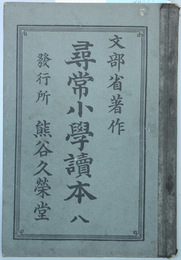 文部省著作
尋常小學讀本 八
發行所 熊谷久榮堂